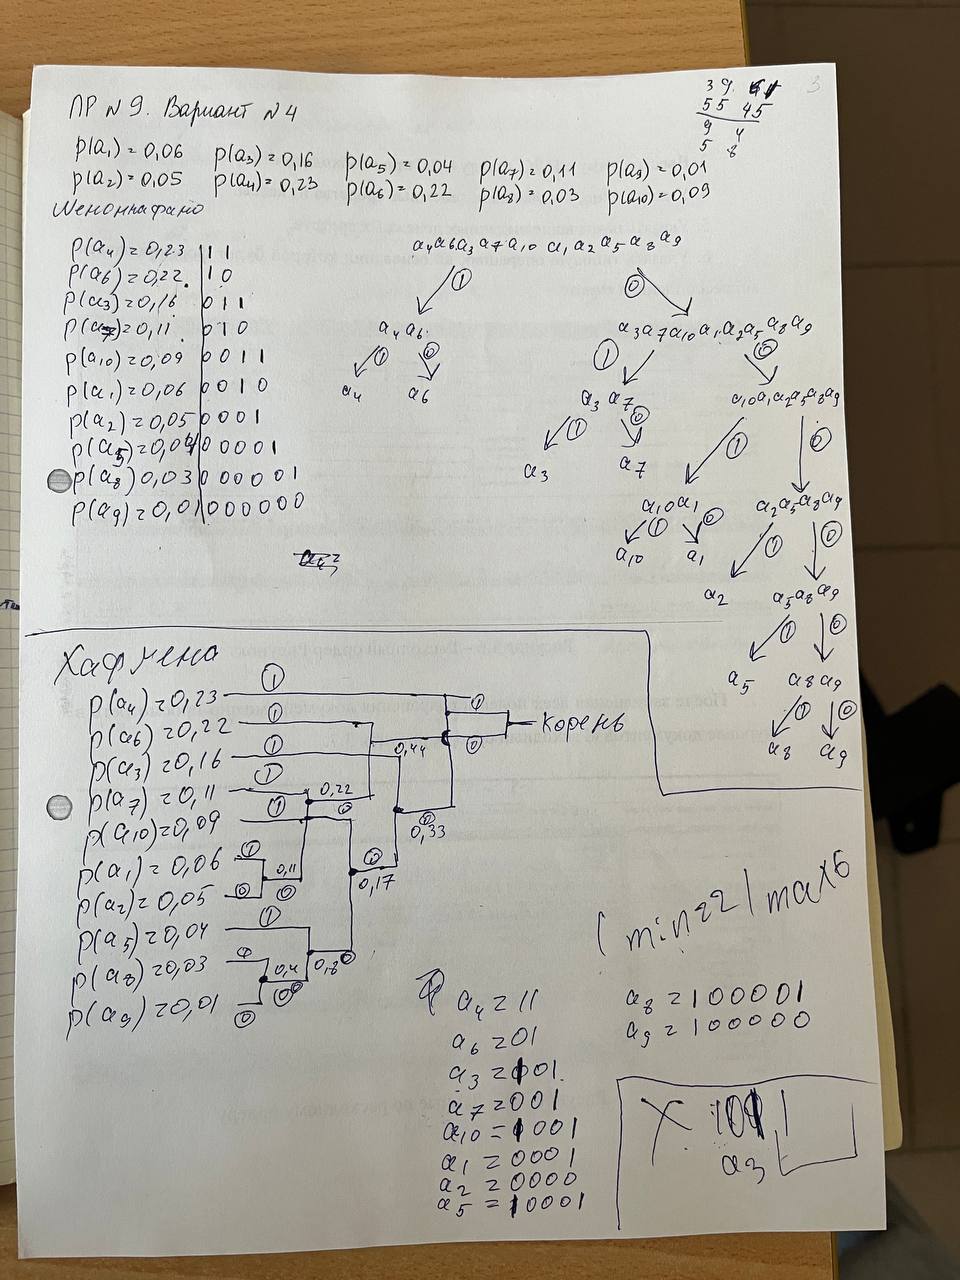 ПР №9. Вариант №4
39. 61
55 45
9 4
5 8
3
p(a1) = 0,06 p(a3) = 0,16 p(a5) = 0,04 p(a7) = 0,11 p(a9) = 0,01
p(a2) = 0,05 p(a4) = 0,23 p(a6) = 0,22 p(a8) = 0,03 p(a10) = 0,09
p(a4) = 0,23 | 11
p(a6) = 0,22 | 10
p(a3) = 0,16 | 011
p(a7) = 0,11 | 010
p(a10) = 0,09 | 0011
p(a1) = 0,06 | 0010
p(a2) = 0,05 | 0001
p(a5) = 0,04 | 00001
p(a8) 0,03 | 000001
p(a9) = 0,01 | 000000
a4 a6 a3 a7 a10 a1 a2 a5 a8 a9
1 0
a4 a6 a3 a7 a10 a1 a2 a5 a8 a9
1 0 1 0
a4 a6 a3 a7 a10 a1 a2 a5 a8 a9
1 0 1 0
a3 a7 a10 a1 a2 a5 a8 a9
1 0 1 0
a10 a1 a2 a5 a8 a9
1 0
a5 a8 a9
1 0
a8 a9
Хафмена
p(a4) = 0,23 1 1
p(a6) = 0,22 1 Корень
p(a3) = 0,16 1 0,44 0
p(a7) = 0,11 1 0,22 0
p(a10) = 0,09 1 0 0,33
p(a1) = 0,06 1 0,11 0 0,17
p(a2) = 0,05 0 0
p(a5) = 0,04 1
p(a8) = 0,03 0,4 0,8 0
p(a9) = 0,01 0 0
(min=2 | max 6
a4 = 11
a6 = 01
a3 = 101
a7 = 001
a10 = 1001
a1 = 0001
a2 = 0000
a5 = 10001
a8 = 100001
a9 = 100000
X 101
a3